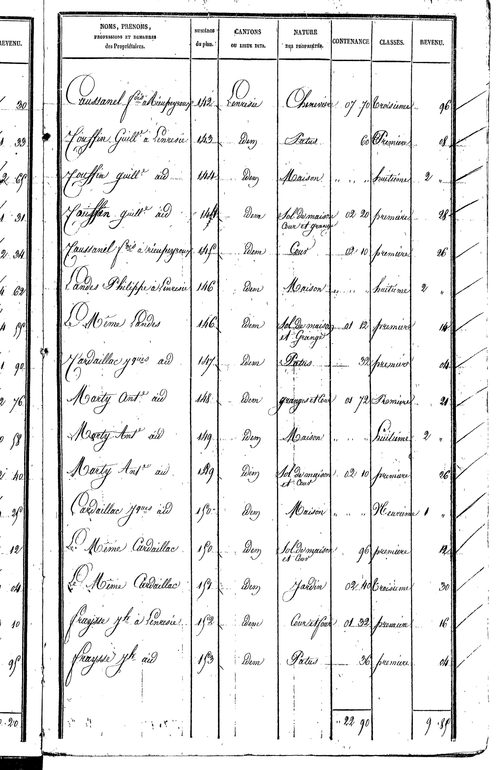 REVENU.
30
33
2 65
1 31
2 34
4 62
1 90
2 76
2 40
12
04
10
95
0 20
NOMS, PRENOMS, PROFESSIONS ET DEMEURES des Propriétaires. NUMÉROS du plan. CANTONS OU LIEUX DITS. NATURE DES PROPRIÉTÉS. CONTENANCE. CLASSES. REVENU.
Caussanel fois à Rieupeyroux 142 Lenresie Cheneviere 07 70 troisieme 96
Touffin Guillme à Lenresie 143 idem Patus 60 Premiere 08
Touffin guillme aid 144 idem Maison " " " huitieme 2 "
Touffin guillme aid 144 idem Sol du maison 02 20 premiere 28
Cour et grange
Caussanel fois à rieupeyroux 145 idem Cour 02 10 premiere 26
Landes Philippe à Lenresie 146 idem Maison " " " huitieme 2 "
Le Même Landes 146 idem Sol du maison 01 12 premiere 14
et Grange
Cardaillac jques aid 147 idem Patus 32 premiere 04
Marty Antne aid 148 idem granges et Cour 01 72 Premiere 21
Marty Antne aid 149 idem Maison " " huitieme 2 "
Marty Antne aid 149 idem Sol du maison 02 10 premiere 26
et Cour
Cardaillac jques aid 150 idem Maison " " Neuvieme 1 "
Le Même Cardaillac 150 idem Sol du maison 96 premiere 12
et Cour
Le Même Cardaillac 151 idem Jardin 02 40 troisieme 30
fraysse jh à Lenresie 152 idem Cour et four 01 32 premiere 16
fraysse jh aid 153 idem Patus 36 premiere 04
22 90 9 85